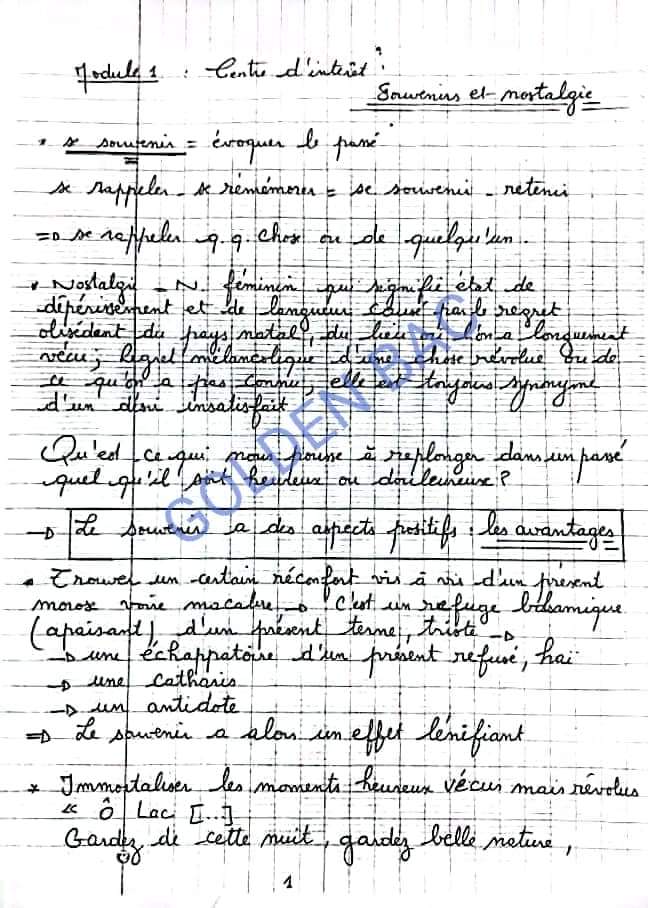 Module 1 : Centre d'intérêt :
Souvenirs et nostalgie
• se souvenir = évoquer le passé
se rappeler - se rémémorer = se souvenir - retenir
=> se rappeler q.q. chose ou de quelqu'un.
• Nostalgie - N. féminin qui signifie état de
dépérissement et de langueur causé par le regret
obsédent du pays natal, du lieu où l'on a longuement
vécu ; Regret mélancolique d'une chose révolue ou de
ce qu'on a pas connu ; elle est toujours synonyme
d'un désir insatisfait
Qu'est ce qui nous pousse à replonger dans un passé
quel qu'il soit heureux ou douleureux ?
→ Le souvenir a des aspects positifs : les avantages
• Trouver un certain réconfort vis à vis d'un présent
morose voire macabre → C'est un refuge balsamique
(apaisant) d'un présent terne, triste →
→ une échappatoire d'un présent refusé, haï
→ une catharis
→ un antidote
=> Le souvenir a alors un effet lénifiant
* Immortaliser les moments heureux vécus mais révolus
" Ô Lac [...]
Gardez de cette nuit, gardez belle nature,
1
GOLDEN BAC